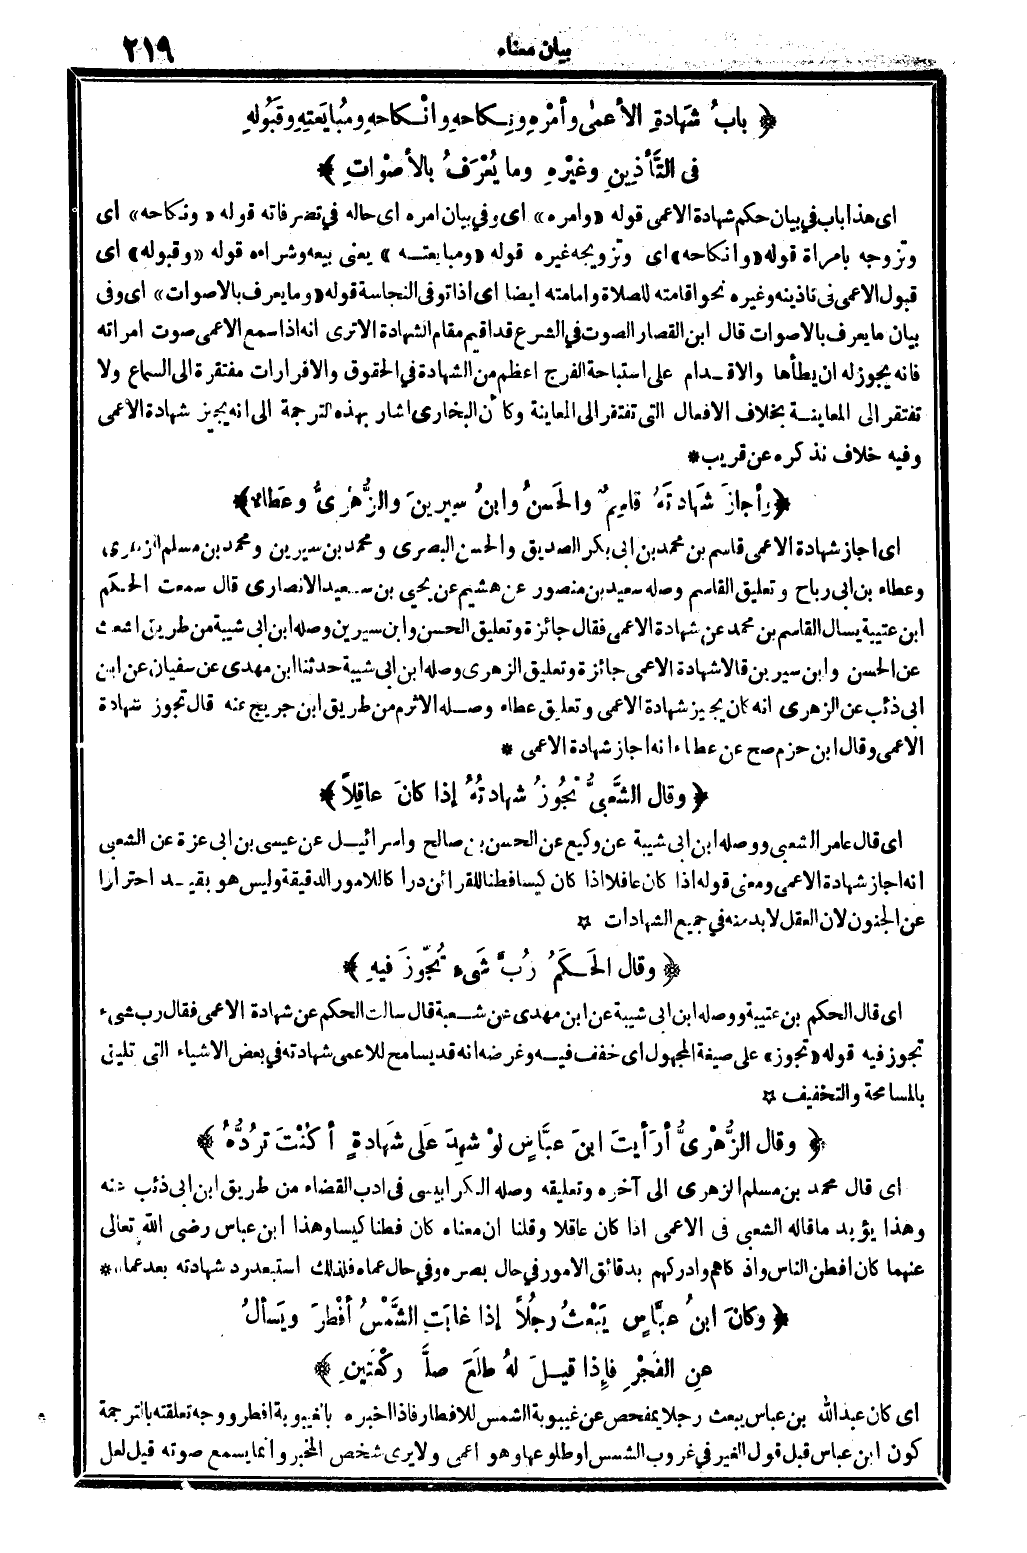 بيان معناه ٢١٩
﴿ بابُ شَهَادةِ الأعمٰى وأمْرِهِ ونِكاحِهِ وانْكاحِهِ ومُبايَعَتِهِ وقَبُولِهِ
فى التَّأذِينِ وغيْرِهِ وما يُعْرَفُ بالأصْواتِ ﴾
اى هذا باب في بيان حكم شهادة الاعمى قوله «وامره» اى وفي بيان امره اى حاله في تصرفاته قوله «ونكاحه» اى
وتزوجه بامراة قوله «وانكاحه» اى وتزويجه غيره قوله «ومبايعته» يعنى بيعه وشراءه قوله «وقبوله» اى
قبول الاعمى فى تاذينه وغيره نحو اقامته للصلاة وامامته ايضا اى اذا توقى النجاسة قوله «وما يعرف بالاصوات» اى وفى
بيان ما يعرف بالاصوات قال ابن القصار الصوت في الشرع قد اقيم مقام الشهادة الا ترى انه اذا سمع الاعمى صوت امراته
فانه يجوز له ان يطأها والاقدام على استباحة الفرج اعظم من الشهادة في الحقوق والاقرارات مفتقرة الى السماع ولا
تفتقر الى المعاينة بخلاف الافعال التى تفتقر الى المعاينة وكأن البخارى اشار بهذه الترجمة الى انه يجيز شهادة الاعمى
وفيه خلاف نذكره عن قريب *
﴿ وأجازَ شَهَادتَهُ قاسِمٌ والحَسَنُ وابنُ سِيرينَ والزُّهْرِىُّ وعَطاءٌ ﴾
اى اجاز شهادة الاعمى قاسم بن محمد بن ابى بكر الصديق والحسن البصرى ومحمد بن سيرين ومحمد بن مسلم الزهرى
وعطاء بن ابى رباح وتعليق القاسم وصله سعيد بن منصور عن هشيم عن يحيى بن سعيد الانصارى قال سمعت الحكم
ابن عتيبة يسال القاسم بن محمد عن شهادة الاعمى فقال جائزة وتعليق الحسن وابن سيرين وصله ابن ابى شيبة من طريق اشعث
عن الحسن وابن سيرين قالا شهادة الاعمى جائزة وتعليق الزهرى وصله ابن ابى شيبة حدثنا ابن مهدى عن سفيان عن ابن
ابى ذئب عن الزهرى انه كان يجيز شهادة الاعمى وتعليق عطاء وصله الاثرم من طريق ابن جريج عنه قال تجوز شهادة
الاعمى وقال ابن حزم صح عن عطاء انه اجاز شهادة الاعمى *
﴿ وقال الشَّعْبِىُّ تَجُوزُ شهادتُهُ إذا كانَ عاقِلاً ﴾
اى قال عامر الشعبى ووصله ابن ابى شيبة عن وكيع عن الحسن بن صالح واسرائيل عن عيسى بن ابى عزة عن الشعبى
انه اجاز شهادة الاعمى ومعنى قوله اذا كان عاقلا اذا كان كيسا فطنا للقرائن دراكا للامور الدقيقة وليس هو بقيد احترازا
عن الجنون لان العقل لا بد منه في جميع الشهادات ✡
﴿ وقال الحَكَمُ رُبَّ شَىْءٍ تُجَوَّزُ فيهِ ﴾
اى قال الحكم بن عتيبة ووصله ابن ابى شيبة عن ابن مهدى عن شعبة قال سالت الحكم عن شهادة الاعمى فقال رب شىء
تجوز فيه قوله «تجوز» على صيغة المجهول اى خفف فيه وغرضه انه قد يسامح للاعمى شهادته في بعض الاشياء التى تليق
بالمسامحة والتخفيف ✡
﴿ وقال الزُّهْرىُّ أرَأيتَ ابنَ عبَّاسٍ لوْ شَهِدَ عَلَى شَهَادةٍ أكُنْتَ تَرُدُّهُ ﴾
اى قال محمد بن مسلم الزهرى الى آخره وتعليقه وصله الكرابيسى فى ادب القضاء من طريق ابن ابى ذئب عنه
وهذا يؤيد ما قاله الشعبى فى الاعمى اذا كان عاقلا وقلنا ان معناه كان فطنا كيسا وهذا ابن عباس رضى الله تعالى
عنهما كان افطن الناس واذكاهم وادركهم بدقائق الامور في حال بصره وفي حال عماه فلذلك استبعد رد شهادته بعد عماه *
﴿ وكانَ ابنُ عبَّاسٍ يَبْعَثُ رجُلاً إذا غابَتِ الشَّمْسُ أفْطَرَ ويَسألُ
عنِ الفَجْرِ فإِذا قيلَ لهُ طلَعَ صلَّى ركْعَتينِ ﴾
اى كان عبد الله بن عباس يبعث رجلا يتفحص عن غيبوبة الشمس للافطار فاذا اخبره بالغيبوبة افطر ووجه تعلقته بالترجمة
كون ابن عباس قبل قول الغير في غروب الشمس او طلوعها وهو اعمى ولا يرى شخص المخبر وانما يسمع صوته قيل لعل